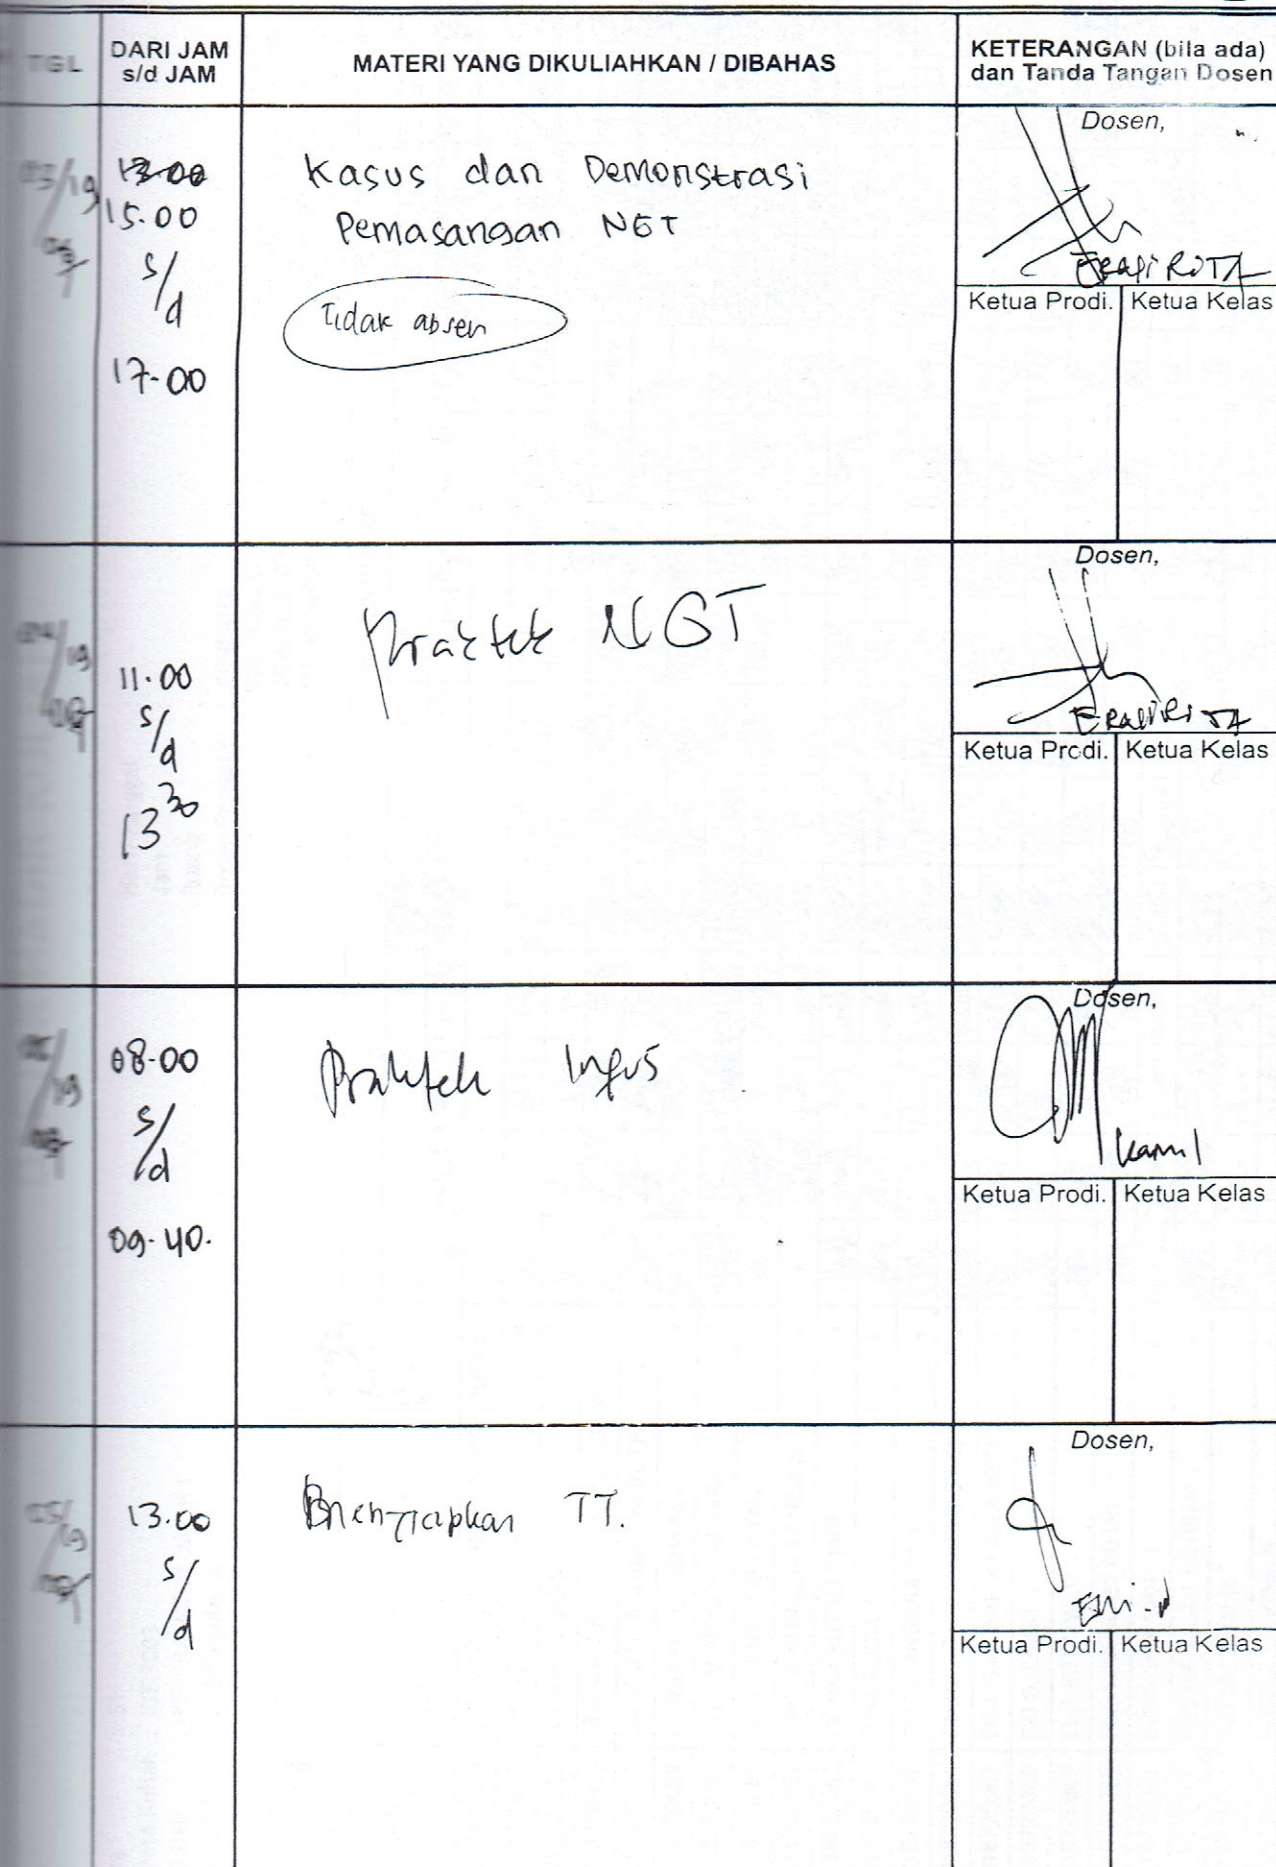 TGL
DARI JAM
s/d JAM
MATERI YANG DIKULIAHKAN / DIBAHAS
KETERANGAN (bila ada)
dan Tanda Tangan Dosen
13.00
15.00
s/d
17-00
Kasus dan Demonstrasi
Pemasangan NGT
Tidak absen
Dosen,
Ketua Prodi. Ketua Kelas
11.00
s/d
13 30
Praktek NGT
Dosen,
Ketua Prodi. Ketua Kelas
08.00
s/d
09.40.
Praktek Infus
Dosen,
Kamil
Ketua Prodi. Ketua Kelas
13.00
s/d
TT.
Dosen,
Ketua Prodi. Ketua Kelas